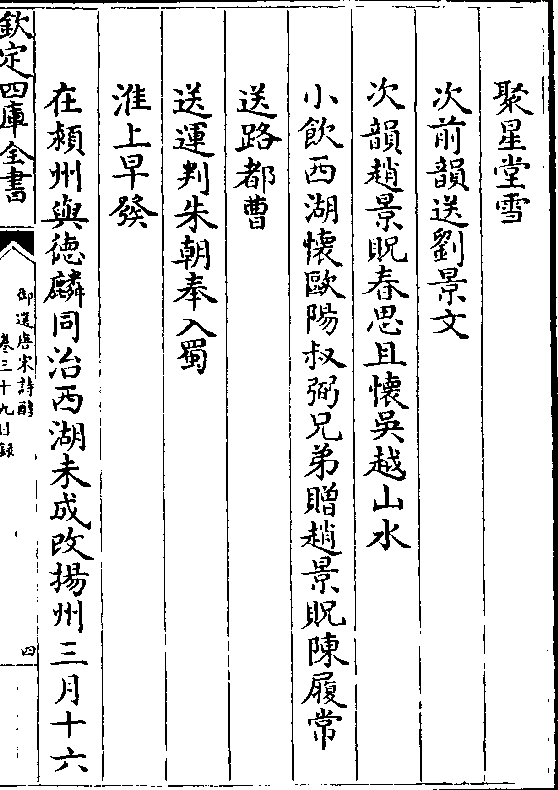 聚星堂雪
次前韻送劉景文
次韻趙景貺春思且懷吳越山水
小飲西湖懷歐陽叔弼兄弟贈趙景貺陳履常
送路都曹
送運判朱朝奉入蜀
淮上早發
在潁州與德麟同治西湖未成改揚州三月十六
欽定四庫全書
御選唐宋詩醇
卷三十九目錄
四